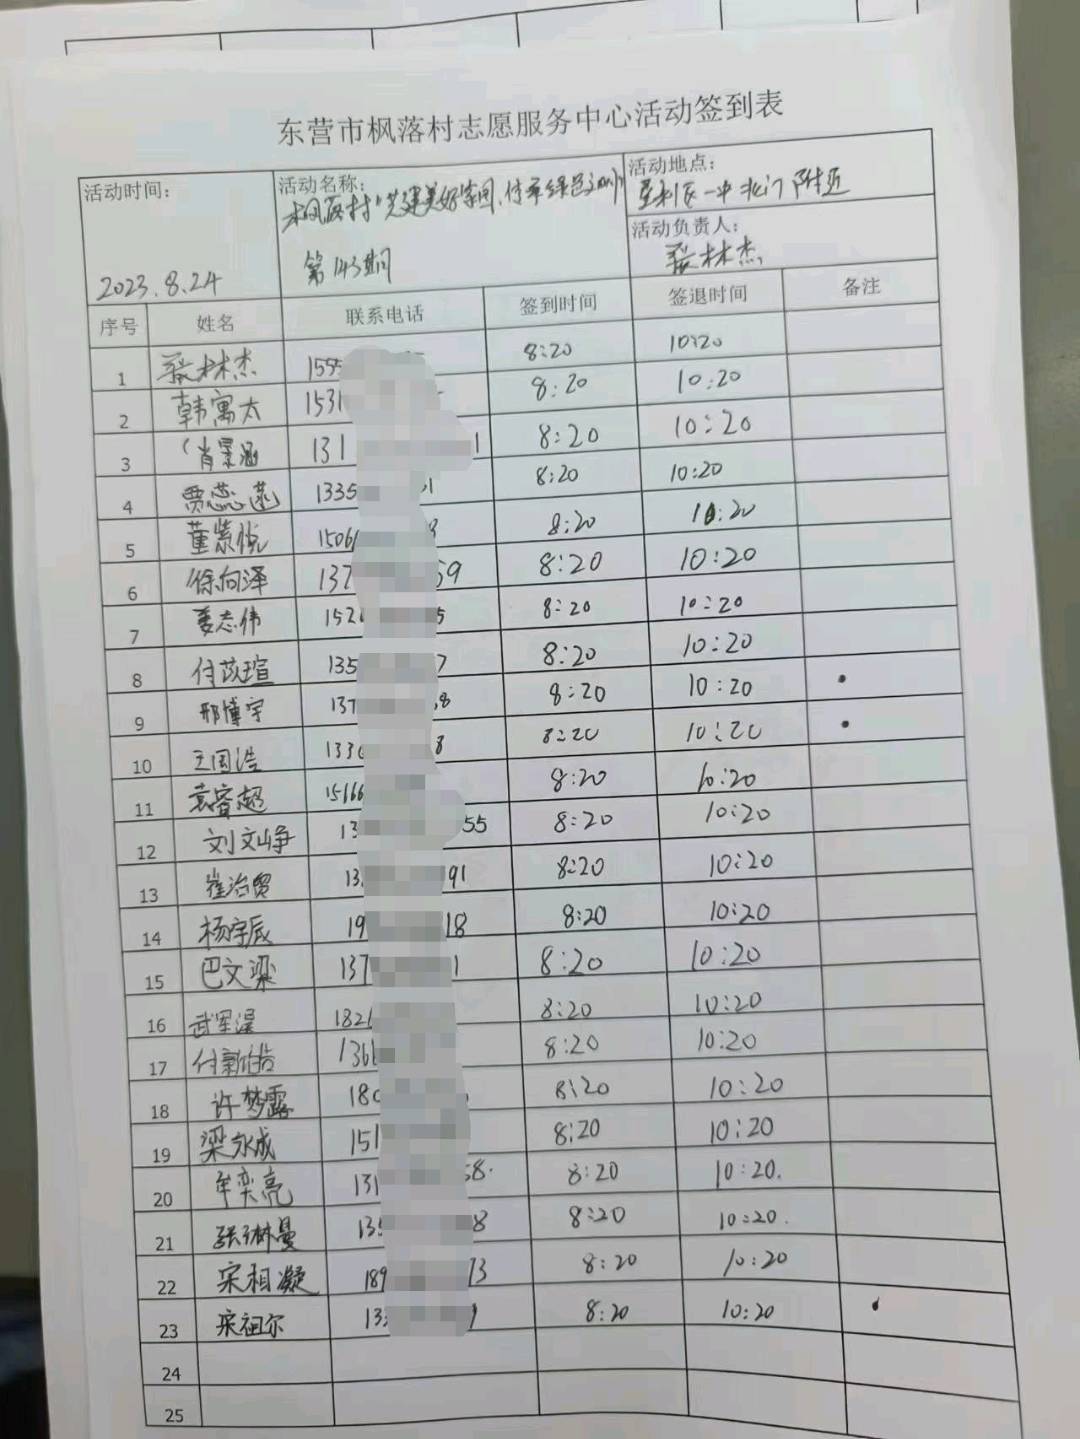 东营市枫落村志愿服务中心活动签到表
活动时间：
2023.8.24
活动名称：
枫落村"共建美好家园，传承绿色文明"
第143期
活动地点：
垦利区一中北门附近
活动负责人：
张林杰
序号 姓名 联系电话 签到时间 签退时间 备注
1 张林杰 159 8:20 10:20
2 韩寓太 1531 8:20 10:20
3 肖景涵 131 1 8:20 10:20
4 贾蕊菡 1335 01 8:20 10:20
5 董紫悦 1506 8 8:20 10:20
6 徐向泽 137 59 8:20 10:20
7 姜志伟 152 5 8:20 10:20
8 付苡瑄 135 7 8:20 10:20
9 邢博宇 137 8 8:20 10:20
10 王国浩 133 8 8:20 10:20
11 袁睿超 15166 8:20 10:20
12 刘文峥 13 55 8:20 10:20
13 崔治贸 13 91 8:20 10:20
14 杨宇辰 19 18 8:20 10:20
15 巴文梁 137 1 8:20 10:20
16 武军泽 182 8:20 10:20
17 付新皓 1366 8:20 10:20
18 许梦露 180 8:20 10:20
19 梁永成 151 8:20 10:20
20 牟奕亮 131 58. 8:20 10:20.
21 张琳曼 135 8 8:20 10:20.
22 宋相凝 189 73 8:20 10:20
23 宋祖尔 13 8:20 10:20
24
25